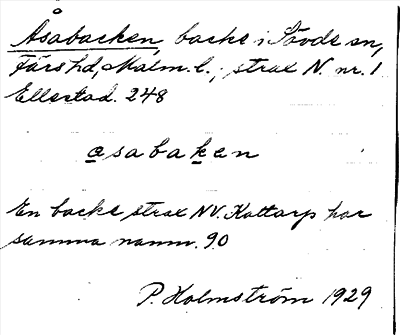 Åsabacken, backe i Sövde sn,
Färs hd, Malm. l.; strax N. nr. 1
Ellestad. 248
asabaken
En backe strax NV. Kattarp har
samma namn. 90
P. Holmström 1929